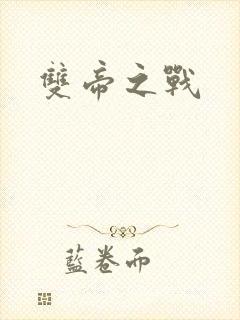 雙帝之戰
藍卷而